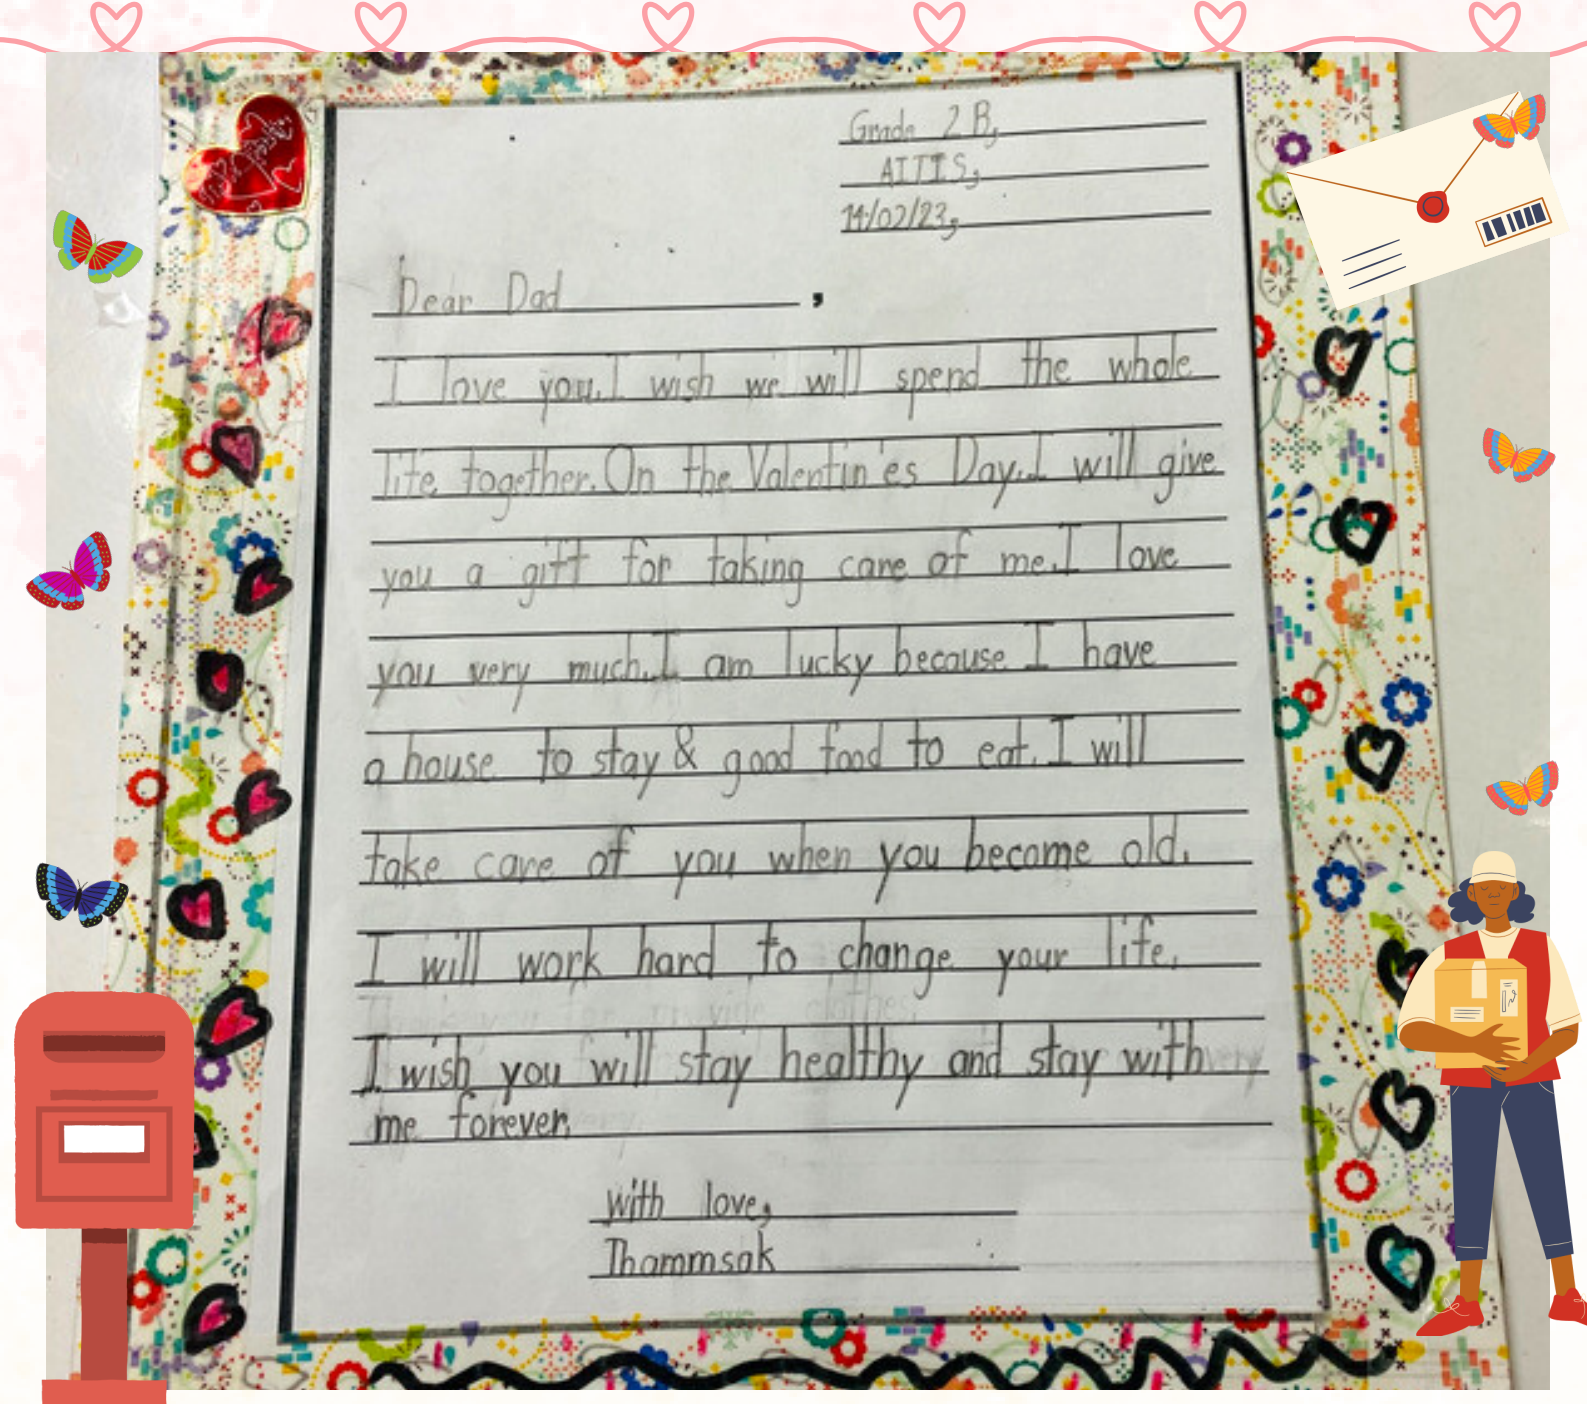 Grade 2 B,
AITIS,
14/02/23,
Dear Dad,
I love you. I wish we will spend the whole
life together. On the Valentin'es Day. I will give
you a gift for taking care of me. I love
you very much. I am lucky because I have
a house to stay & good food to eat. I will
take care of you when you become old.
I will work hard to change your life.
I wish you will stay healthy and stay with
me forever.
With love,
Thammsak